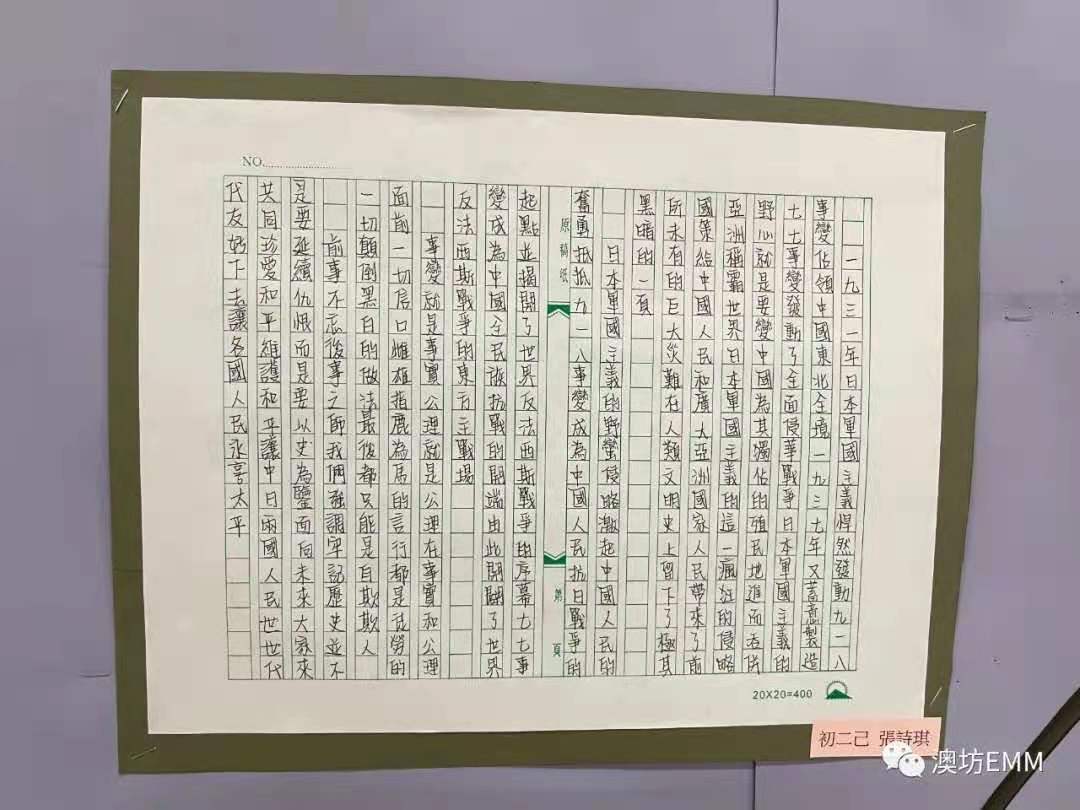 NO.
一九三一年日本軍國主義悍然發動九一八
事變佔領中國東北全境一九三七年又蓄意製造
七七事變發動了全面侵華戰爭日本軍國主義的
野心就是要變中國為其獨佔的殖民地進而吞併
亞洲稱霸世界日本軍國主義的這一瘋狂的侵略
國策給中國人民和廣大亞洲國家人民帶來了前
所未有的巨大災難在人類文明史上留下了極其
黑暗的一頁
日本軍國主義的野蠻侵略激起中國人民的
奮勇抵抵九一八事變成為中國人民抗日戰爭的
原稿紙
第 頁
起點並揭開了世界反法西斯戰爭的序幕七七事
變成為中國全民族抗戰的開端由此開闢了世界
反法西斯戰爭的東方主戰場
事變就是事實公理就是公理在事實和公理
面前一切信口雌雄指鹿為馬的言行都是徒勞的
一切顛倒黑白的做法最後都只能是自欺欺人
前事不忘後事之師我們強調牢記歷史並不
是要延續仇恨而是要以史為鑒面向未來大家來
共同珍愛和平維護和平讓中日兩國人民世世代
代友好下去讓各國人民永享太平
20X20=400
初二己 張詩琪
澳坊EMM